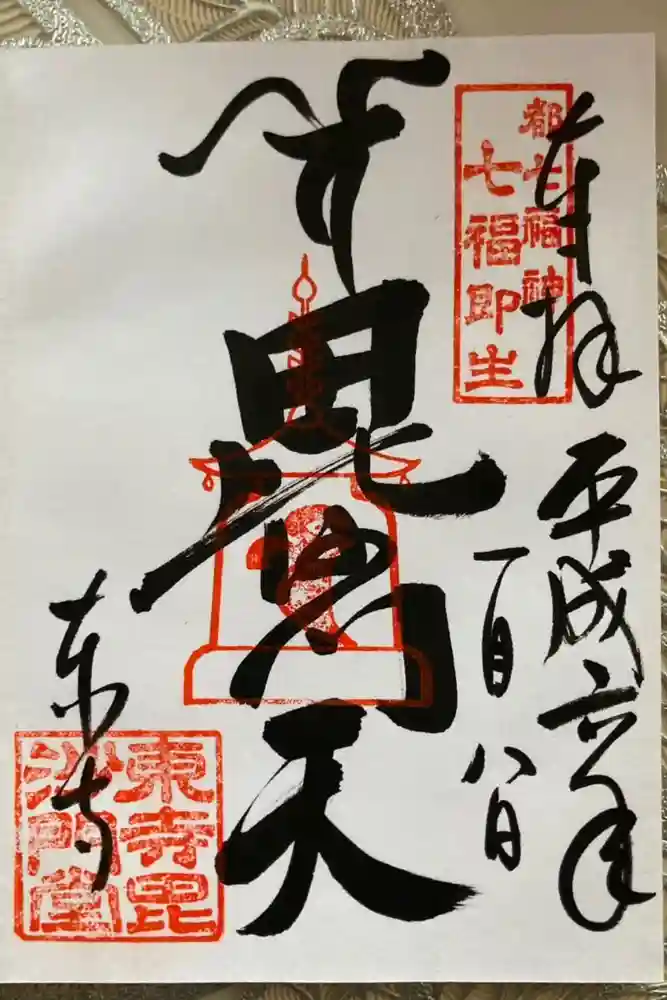 奉拝
都七福神
七福即生
平成六年
一月八日
毘沙門天
東寺
東寺毘
沙門堂